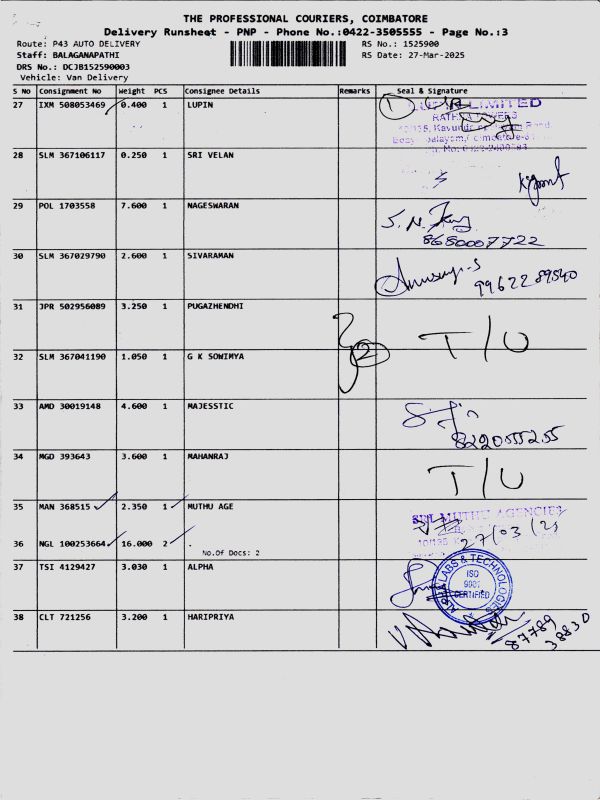 THE PROFESSIONAL COURIERS, COIMBATORE
Delivery Runsheet - PNP - Phone No.:0422-3505555 - Page No.:3
Route: P43 AUTO DELIVERY RS No.: 1525900
Staff: BALAGANAPATHI RS Date: 27-Mar-2025
DRS No.: DCJB152590003
Vehicle: Van Delivery
S No Consignment No Weight PCS Consignee Details Remarks Seal & Signature
27 IXM 508053469 0.400 1 LUPIN 1
LIMITED
28 SLM 367106117 0.250 1 SRI VELAN
29 POL 1703558 7.600 1 NAGESWARAN
8680007722
30 SLM 367029790 2.600 1 SIVARAMAN
9962289540
31 JPR 502956089 3.250 1 PUGAZHENDHI T/U
32 SLM 367041190 1.050 1 G K SOWIMYA 2
33 AMD 30019148 4.600 1 MAJESSTIC
8220055255
34 MGD 393643 3.600 1 MAHANRAJ T/U
35 MAN 368515 2.350 1 MUTHU AGE
SRI MUTHU AGENCIES
27/03/25
36 NGL 100253664 16.000 2 .
No.Of Docs: 2
37 TSI 4129427 3.030 1 ALPHA
ALPHA LABS & TECHNOLOGIES
ISO
9001
CERTIFIED
38 CLT 721256 3.200 1 HARIPRIYA
87789
38830